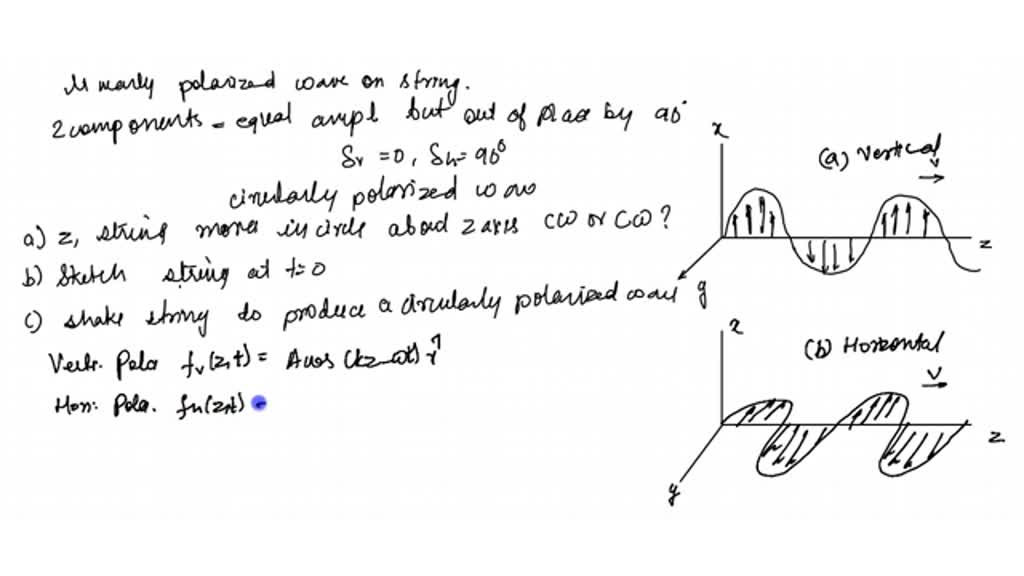 polarized wave on string.
2 components = equal ampl but out of phase by 90°
δv = 0, δh = 90°
circularly polarized wave
a) z, string moves in circle about z axis CCW or CW?
b) Sketch string at t=0
c) shake string to produce a circularly polarized wave
Vertr. Pola fv(z,t) = A cos (kz-ωt) x̂
Hori: Pola. fh(z,t) =
x
(a) Vertical
v
z
y
x
(b) Horizontal
v
z
y